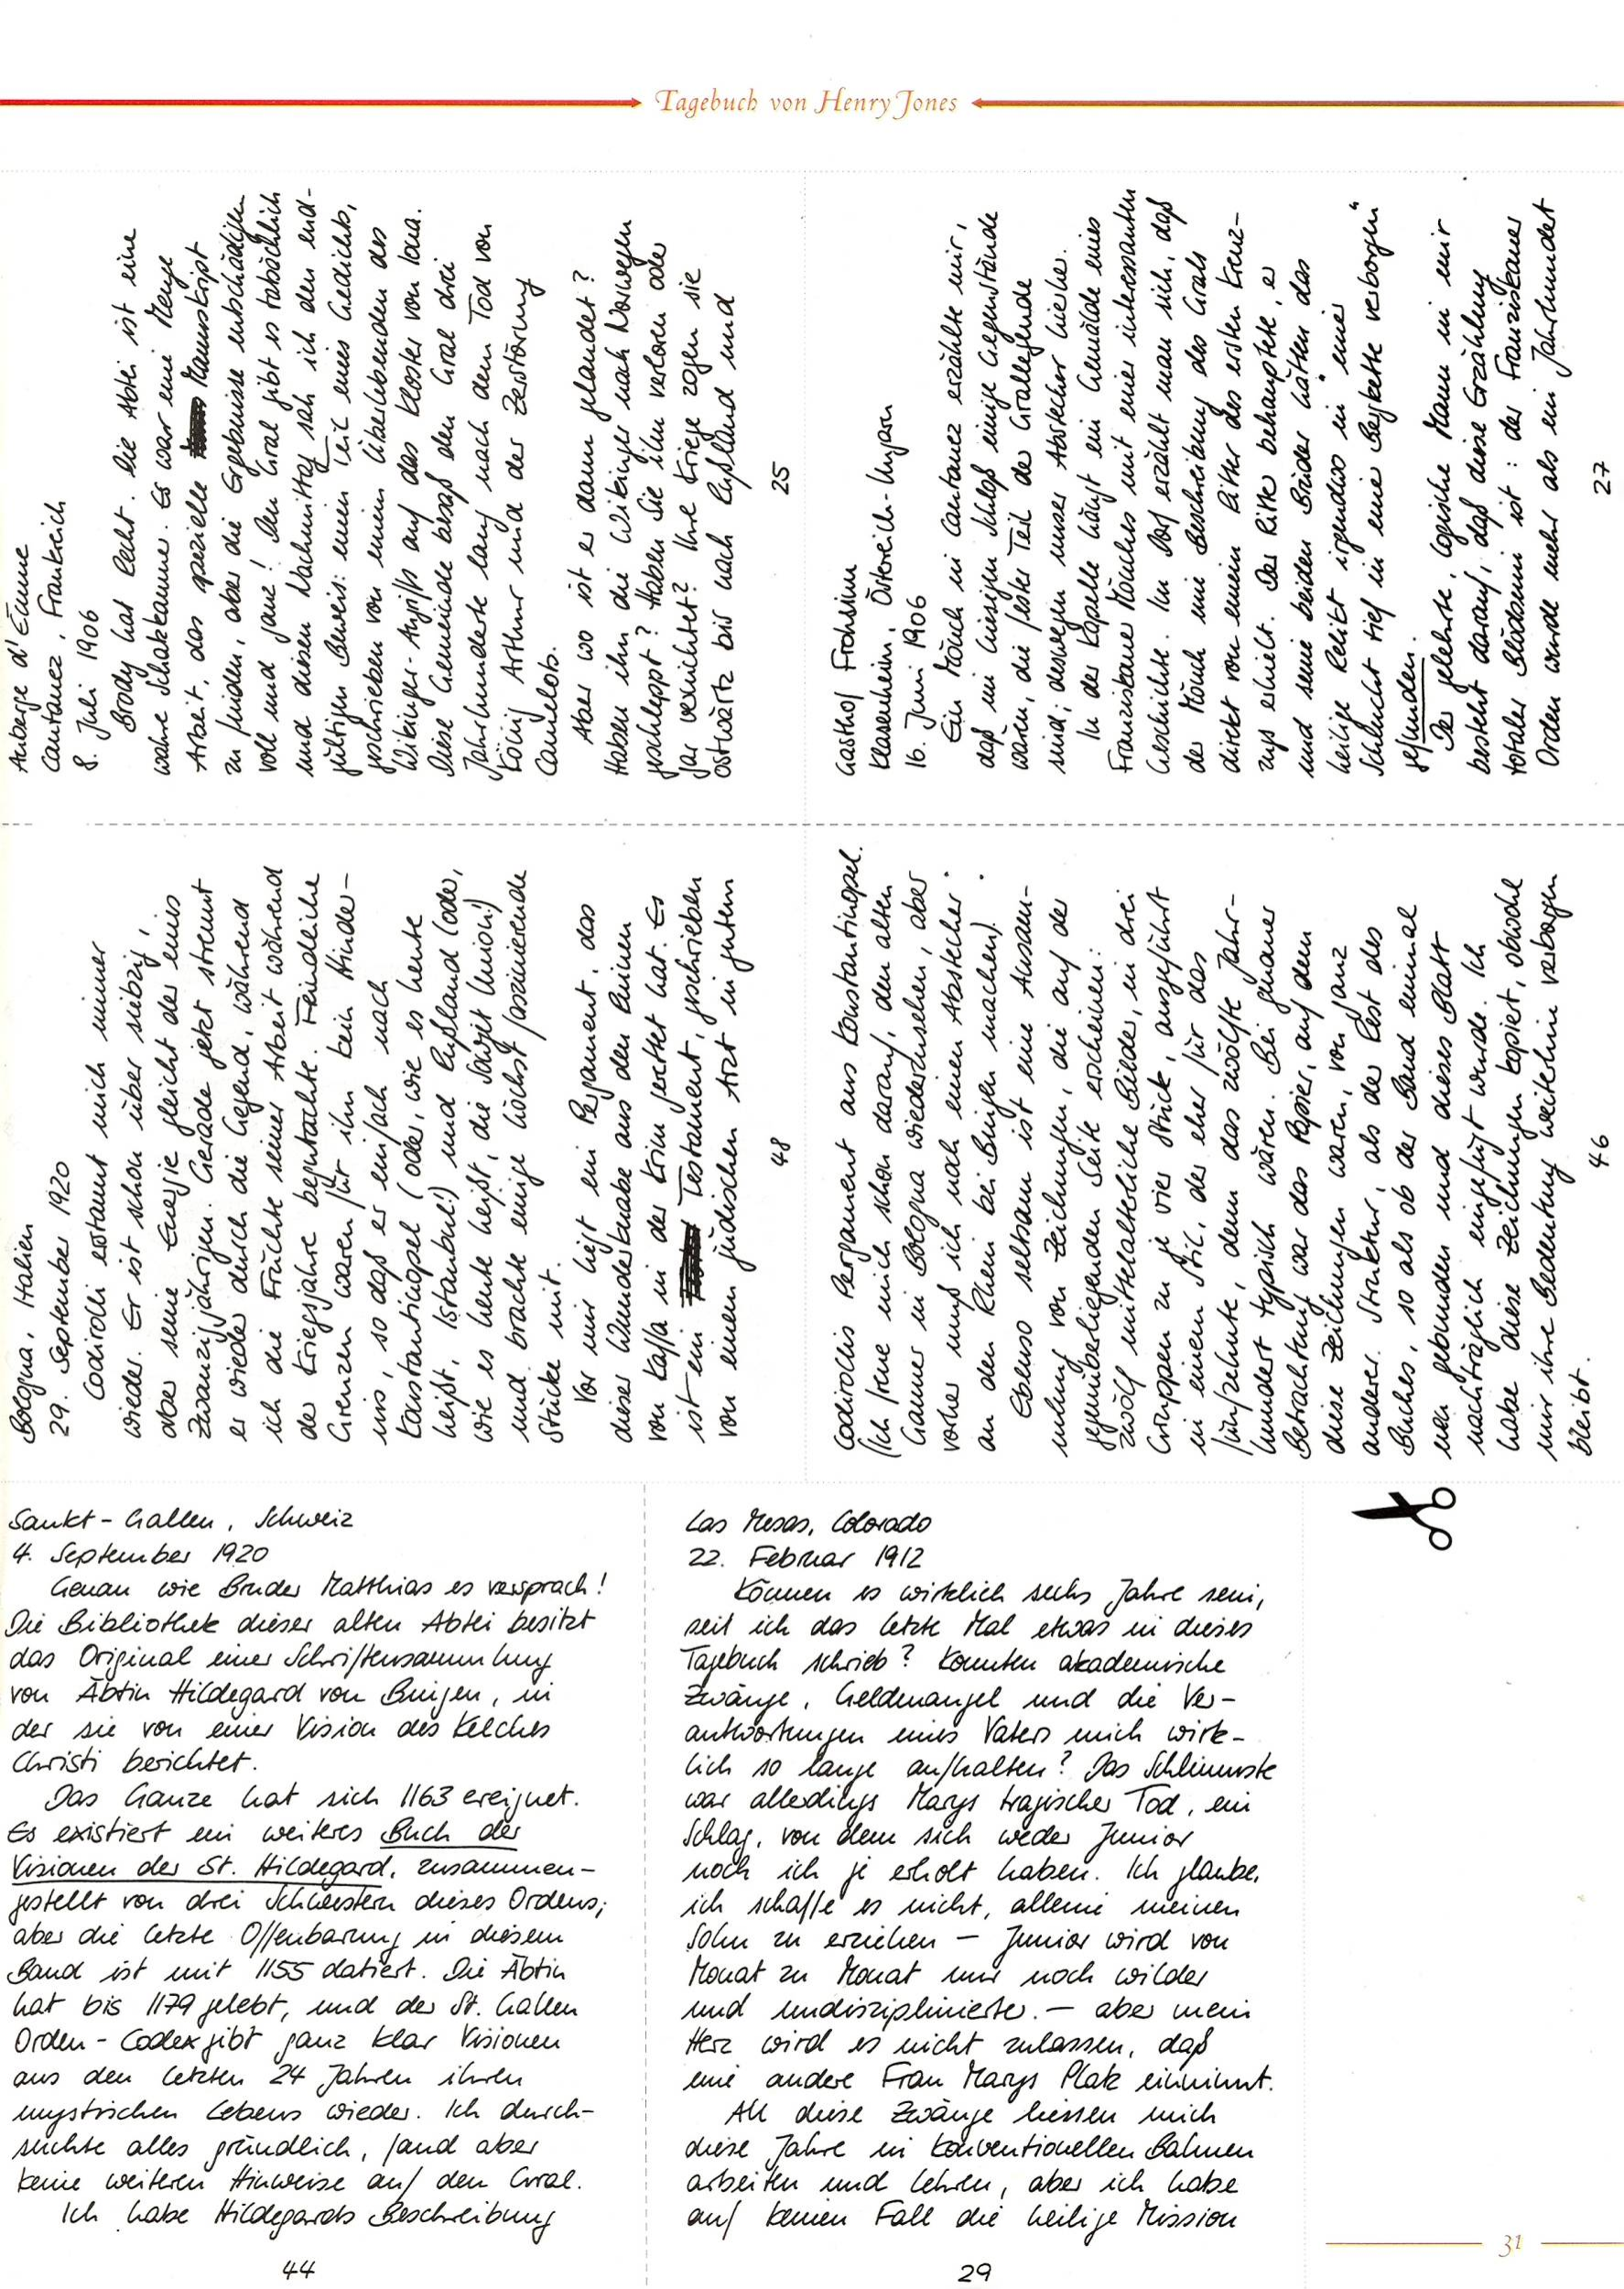 Tagebuch von Henry Jones
Auberge d'Eunne
Cantanez, Frankreich
8. Juli 1906
Brody hat Recht. Die Abtei ist eine
wahre Schatzkammer. Es war eine Menge
Arbeit, das spezielle Manuskript
zu finden, aber die Ergebnisse entschädigen
voll und ganz! Den Gral gibt es tatsächlich
und diesen Nachmittag sah ich den end-
gültigen Beweis: einen Teil eines Gedichts,
geschrieben von einem Überlebenden des
Wikinger-Angriffs auf das Kloster von Iona.
Diese Gemeinde besaß den Gral drei
Jahrhunderte lang nach dem Tod von
König Arthur und der Zerstörung
Camelots.
Aber wo ist er dann gelandet?
Haben ihn die Wikinger nach Norwegen
geschleppt? Haben Sie ihn verloren oder
gar vernichtet? Ihre Kriege zogen sie
ostwärtz bis nach Rußland und
25
Gasthof Frohsinn
Klasenheim, Östereich-Ungarn
16. Juni 1906
Ein Mönch in Cantanez erzählte mir,
daß im hiesigen Schloß einige Gegenstände
wären, die fester Teil der Grallegende
sind; deswegen unser Abstecher hierher.
In der Kapelle hängt ein Gemälde eines
Franziskaner Mönches mit einer interessanten
Geschichte. Im Dorf erzählt man sich, daß
der Mönch eine Beschreibung des Grals
direkt von einem Ritter des ersten Kreuz-
zugs erhielt. Der Ritter behauptete, er
und seine beiden Brüder hätten das
heilige Relikt irgendwo in "einer
Schlucht tief in eine Bergkette verborgen"
gefunden.
Der gelehrte, logische Mann in mir
besteht darauf, daß diese Erzählung
totaler Blödsinn ist: der Franziskaner
Orden wurde mehr als ein Jahrhundert
27
Bologna, Italien
29. September 1920
Codirolli erstaunt mich immer
wieder. Er ist schon über siebzig,
aber seine Energie gleicht der eines
Zwanzigjährigen. Gerade jetzt streunt
er wieder durch die Gegend, während
ich die Früchte seiner Arbeit während
der Kriegsjahre begutachte. Feindliche
Grenzen waren für ihn kein Hinder-
nis, so daß er einfach nach
Konstantinopel (oder, wie es heute
heißt, Istanbul!) und Rußland (oder,
wie es heute heißt, die Sowjet Union!)
und brachte einige höchst faszinierende
Stücke mit.
Vor mir liegt ein Pergament, das
dieser Wunderknabe aus den Ruinen
von Kaffa in der Krim gerettet hat. Es
ist ein Testament, geschrieben
von einem jüdischen Arzt in gutem
48
Codirollis Pergament aus Konstantinopel.
(Ich freue mich schon darauf, den alten
Gauner in Bologna wiederzusehen, aber
vorher muß ich noch einen Abstecher
an den Rhein bei Bingen machen).
Ebenso seltsam ist eine Ansam-
mlung von Zeichnungen, die auf der
gegenüberliegenden Seite erscheinen:
zwölf mittelalterliche Bilder, in drei
Gruppen zu je vier Stück, ausgeführt
in einem Stil, der eher für das
fünfzehnte, denn das zwölfte Jahr-
hundert typisch wären. Bei genauer
Betrachtung war das Papier, auf dem
diese Zeichnungen waren, von ganz
anderer Struktur, als der Rest des
Buches, so als ob der Band einmal
neu gebunden und dieses Blatt
nachträglich eingefügt wurde. Ich
habe diese Zeichnungen kopiert, obwohl
mir ihre Bedeutung weiterhin verborgen
bleibt.
46
Sankt-Gallen, Schweiz
4. September 1920
Genau wie Bruder Matthias es versprach!
Die Bibliothek dieser alten Abtei besitzt
das Original einer Schriftensammlung
von Äbtin Hildegard von Bingen, in
der sie von einer Vision des Kelches
Christi berichtet.
Das Ganze hat sich 1163 ereignet.
Es existiert ein weiteres Buch der
Visionen der St. Hildegard, zusammen-
gestellt von drei Schwestern dieses Ordens;
aber die letzte Offenbarung in diesem
Band ist mit 1155 datiert. Die Äbtin
hat bis 1179 gelebt, und der St. Gallen
Orden-Codex gibt ganz klar Visionen
aus den letzten 24 Jahren ihren
mystischen Lebens wieder. Ich durch-
suchte alles gründlich, fand aber
keine weiteren Hinweise auf den Gral.
Ich habe Hildegards Beschreibung
44
Las Mesas, Colorado
22. Februar 1912
Können es wirklich sechs Jahre sein,
seit ich das letzte Mal etwas in dieses
Tagebuch schrieb? Konnten akademische
Zwänge, Geldmangel und die Ver-
antwortungen eines Vaters mich wirk-
lich so lange aufhalten? Das Schlimmste
war allerdings Marys tragischer Tod, ein
Schlag, von dem sich weder Junior
noch ich je erholt haben. Ich glaube,
ich schaffe es nicht, alleine meinen
Sohn zu erziehen – Junior wird von
Monat zu Monat nur noch wilder
und undisziplinierter. – aber mein
Herz wird es nicht zulassen, daß
eine andere Frau Marys Platz einnimmt.
All diese Zwänge liessen mich
diese Jahre in konventionellen Bahnen
arbeiten und lehren, aber ich habe
auf keinen Fall die heilige Mission
29
31